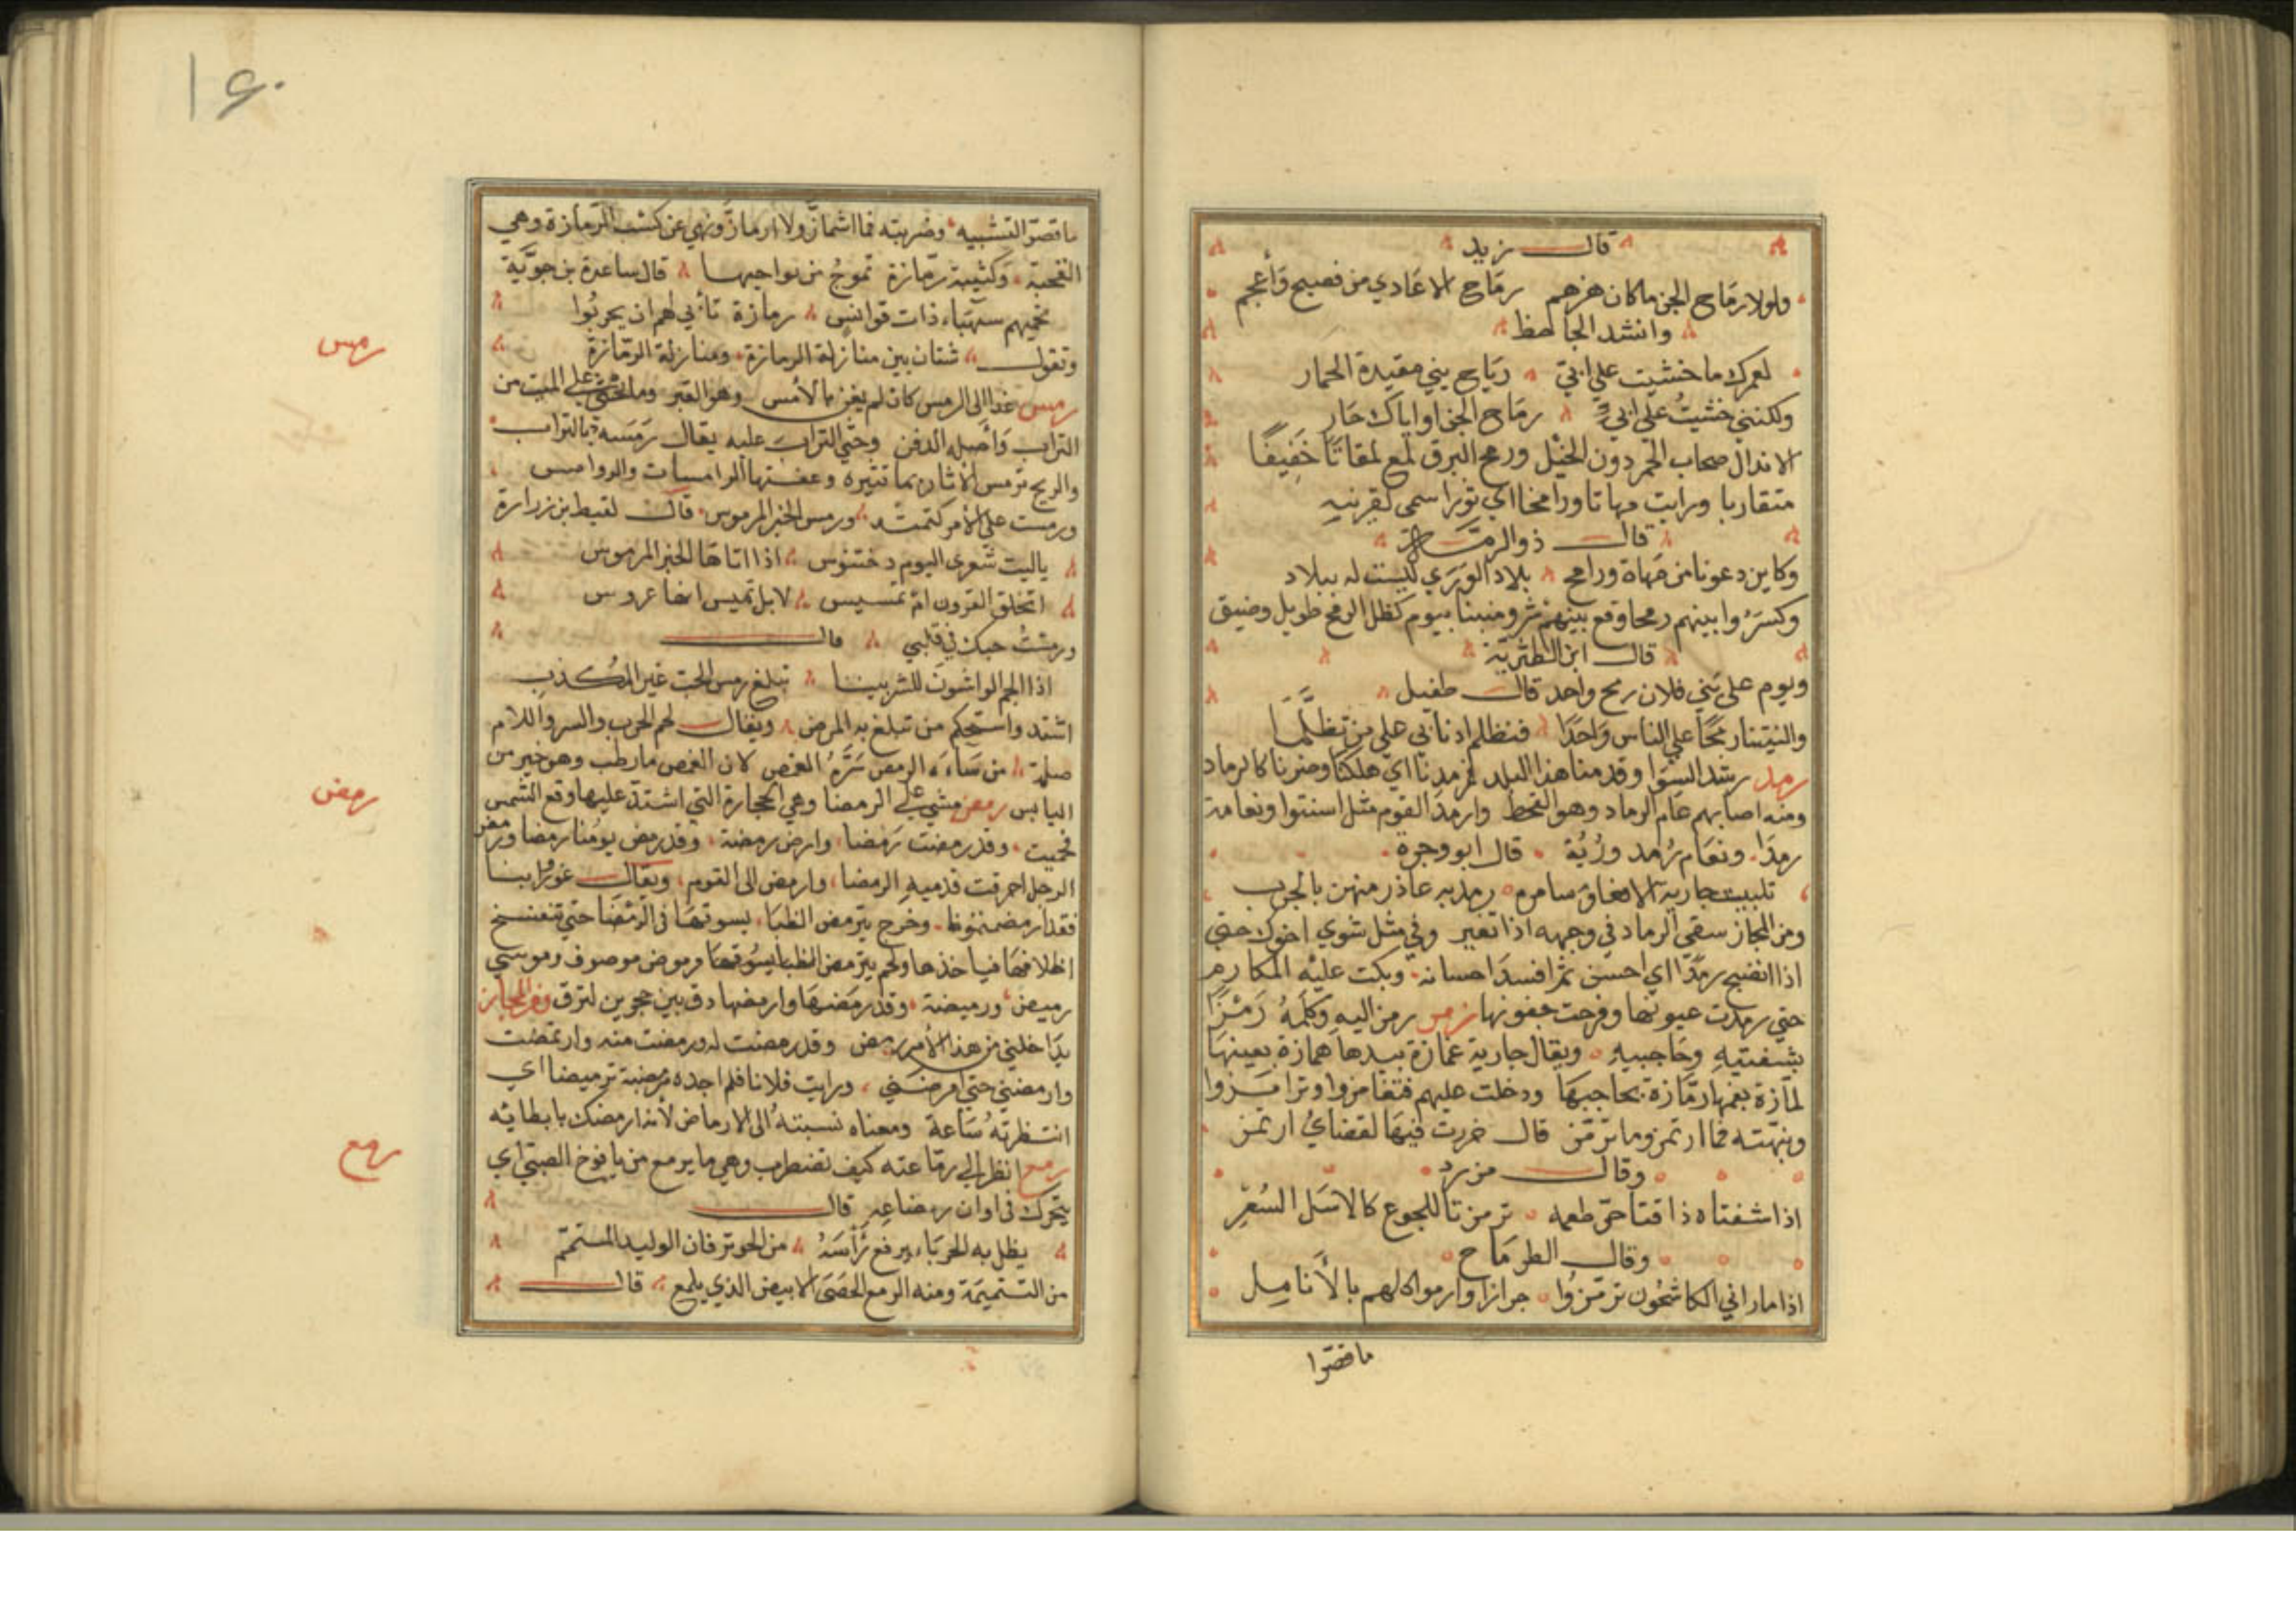 قال زيد
ولولا رماح الجن ماكان هزهم رماح الاعادي من فصيح وأعجم
وانشد الجاحظ
لعمرك ماخشيت علي ابي رماح بني مقيدة الحمار
ولكنني خشيتُ على ابي رماح الجن اواياك حار
متقاربا ورايت مهاتا ورامحا اي ثورا سمى لقرنيه
قال ذوالرمة
وكاين دعونا من مهاة ورامح بلاد الورى ليست له ببلاد
وكسرُوا بينهم رمحا وقع بينهم شر ومنينا بيوم كظل الرمح طويل وضيق
قال ابن الطثرية
ويوم على بني فلان رمح واحد قال طفيل
رمد وقدمنا هذا البلد فرمدنا اي هلكنا وصرنا كالرماد
ومنه اصابهم عام الرماد وهو القحط وارمد القوم مثل اسنتوا ونعامة
رمدا ونعام رُمد ورُبد قال ابو وجزة
تلبيت جاريه الافعا وسامره رمد به عاذر منهن بالجرب
ومن المجاز سقي الرماد في وجهه اذا تغير وفي مثل شوي اخوك حتي
اذا انضج رمدا اي احسن ثم افسد احسانه وبكت عليه المكارم
حتي رمدت عيونها وقرحت جفونها رمز رمز اليهِ وكلمهُ رمزا
بشفتيهِ وحاجبيهِ ويقال جارية غمازة بيدها همازة بعينها
لمازة بفمها رمازة بحاجبها ودخلت عليهم فتغامزوا وترامزوا
ونبهته فما ارتمز وما ترمز قال خررت فيها لقفاي ارتمز
وقال مزرد
اذا شفتاه ذاقتا حر طعمه ترمزتا للجوع كالاسل السُعر
وقال الطرماح
اذا ما راني الكاشحُون ترمزُوا جرازا وارموالهم بالأنامل
ماقصّوا
١٤٠
ماقصر التشبيه وضربته فما اشماز ولا ارماز ونهي عن كسب الرمازة وهي
القحبة وكتيبة رمازة تموجُ من نواحيها قال ساعدة بن جوية
تحميهم شهباء ذات قوانس رمازة تأبي لهم ان يحربُوا
وتقول شتان بين منازلة الرمازة ومنازلة الرمازة
رمس
رمس غدا الى الرمس كان لم يغن بالأمس وهو القبر وما يحثى علي الميت من
التراب وأصله الدفن وحثي التراب عليه يقال رمسه بالتراب
والريح ترمس الاثار بما تثيره وعفتها الرامسات والروامس
ورمست علي الأمر كتمته ورمس الخبر المرموس قال لقيط بن زرارة
ياليت شعري اليوم دختنوس اذا اتاها الخبر المرموس
اتحلق القرون ام تميس لا بل تميس انها عروس
ورمستُ حبك في قلبي قال
اذا الجم الواشون للشر بيننا تبلغ رمس الحب غير المُكذب
اشتد واستحكم من تبلغ به المرض ويقال لحم الحرب والسر واللام
صلة من ساءه الرمص سرهُ الغمص لان الغمص مارطب وهو خير من
رمض
اليابس رمض مشي علي الرمضا وهي الحجارة التي اشتد عليها وقع الشمس
فحميت وقد رمضت رمضا وارض رمضة وقد رمض يومُنا رمضا ورمض
الرجل احرقت قدميهِ الرمضا وارمض الى القوم ويقال غوروا بنا
فقد ارمضتمونا وخرج يترمض الظبا يسوقها في الرمضا حتي تتفسخ
اظلافها فياخذها ولحم يترمض الظبا يسوقها مرموض موصوف وموسي
رميض ورميضة وقد رمضها وارمضها دق بين حجرين لترق ومن المجاز
تداخلني من هذا الأمر رمض وقد رمضت له ورمضت منه وارتمضت
وارمضني حتي امرضني ورايت فلانا فلم اجده فرمضته ترميضا اي
انتظرته ساعة ومعناه نسبتهُ الى الارماض لأنه ارمضك بابطائه
رمع
رمع انظر الي رماعته كيف تضطرب وهي ما يرمع من يافوخ الصبي اي
يتحرك في اوان رضاعه قال
يظل به الحرباء يرفع رأسهُ من الحر ترفان الوليد المستمم
من التتميمة ومنه الرمع الحصى الابيض الذي يلمع قال